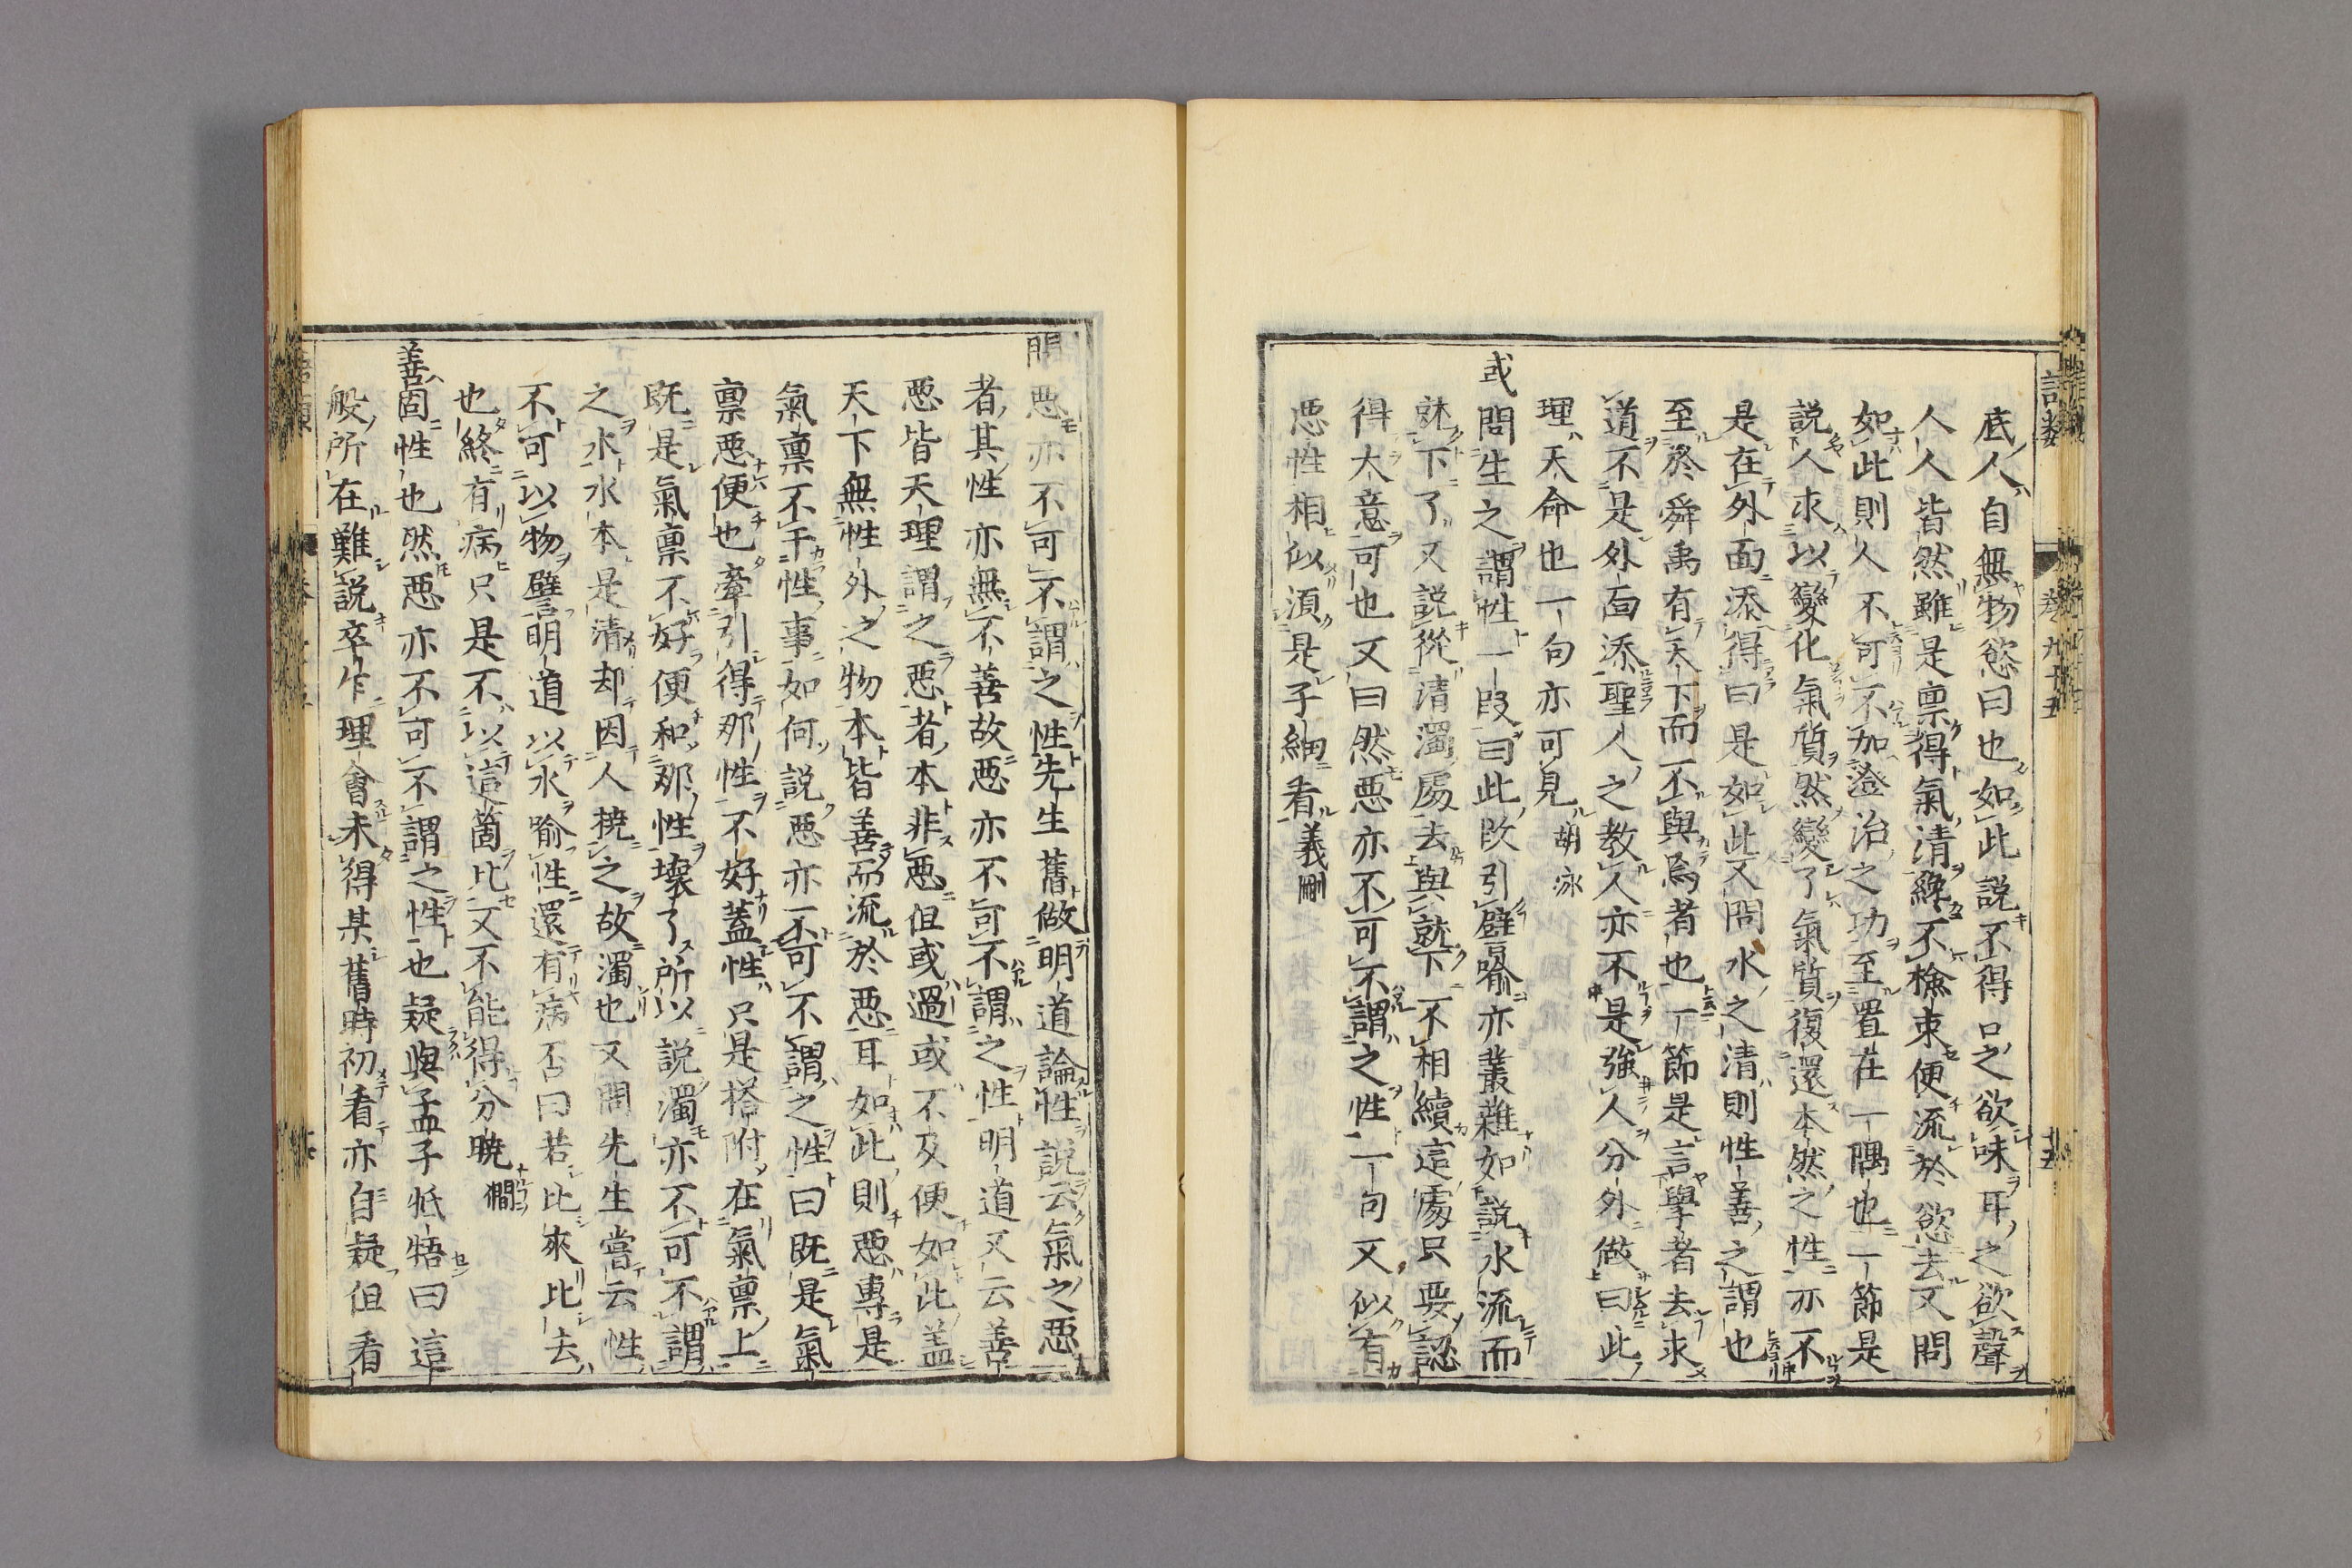 底人自無物慾曰也如此說不得口之欲味耳之欲聲
人人皆然雖是禀得氣清纔不檢束便流於慾去又問
如此則人不可不加澄治之功至置在一隅也一節是
説人求以變化氣質然變了氣質復還本然之性亦不
是在外面添得曰是如此又問水之清則性善之謂也
至於舜禹有天下而不與焉者也一節是言學者去求
道不是外面添聖人之教人亦不是強人分外做曰此
理天命也一句亦可見胡泳
或問生之謂性一段曰此段引譬喻亦叢雜如説水流而
就下了又説從清濁處去與就下不相續這處只要認
得大意可也又曰然惡亦不可不謂之性一句又似有
惡性相似須是子細看義剛
問惡亦不可不謂之性先生舊做明道論性説云氣之惡
者其性亦無不善故惡亦不可不謂之性明道又云善
惡皆天理謂之惡者本非惡但或過或不及便如此盖
天下無性外之物本皆善而流於惡耳如此則惡專是
氣禀不干性事如何説惡亦不可不謂之性曰既是氣
禀惡便也牽引得那性不好蓋性只是搭附在氣禀上
既是氣禀不好便和那性壞了所以説濁亦不可不謂
之水水本是清却因人撓之故濁也又問先生嘗云性
不可以物譬明道以水喻性還有病否曰若比來比去
也終有病只是不以這箇比又不能得分曉僩
善固性也然惡亦不可不謂之性也疑與孟子牴牾曰這
般所在難説卒乍理會未得某舊時初看亦自疑但看